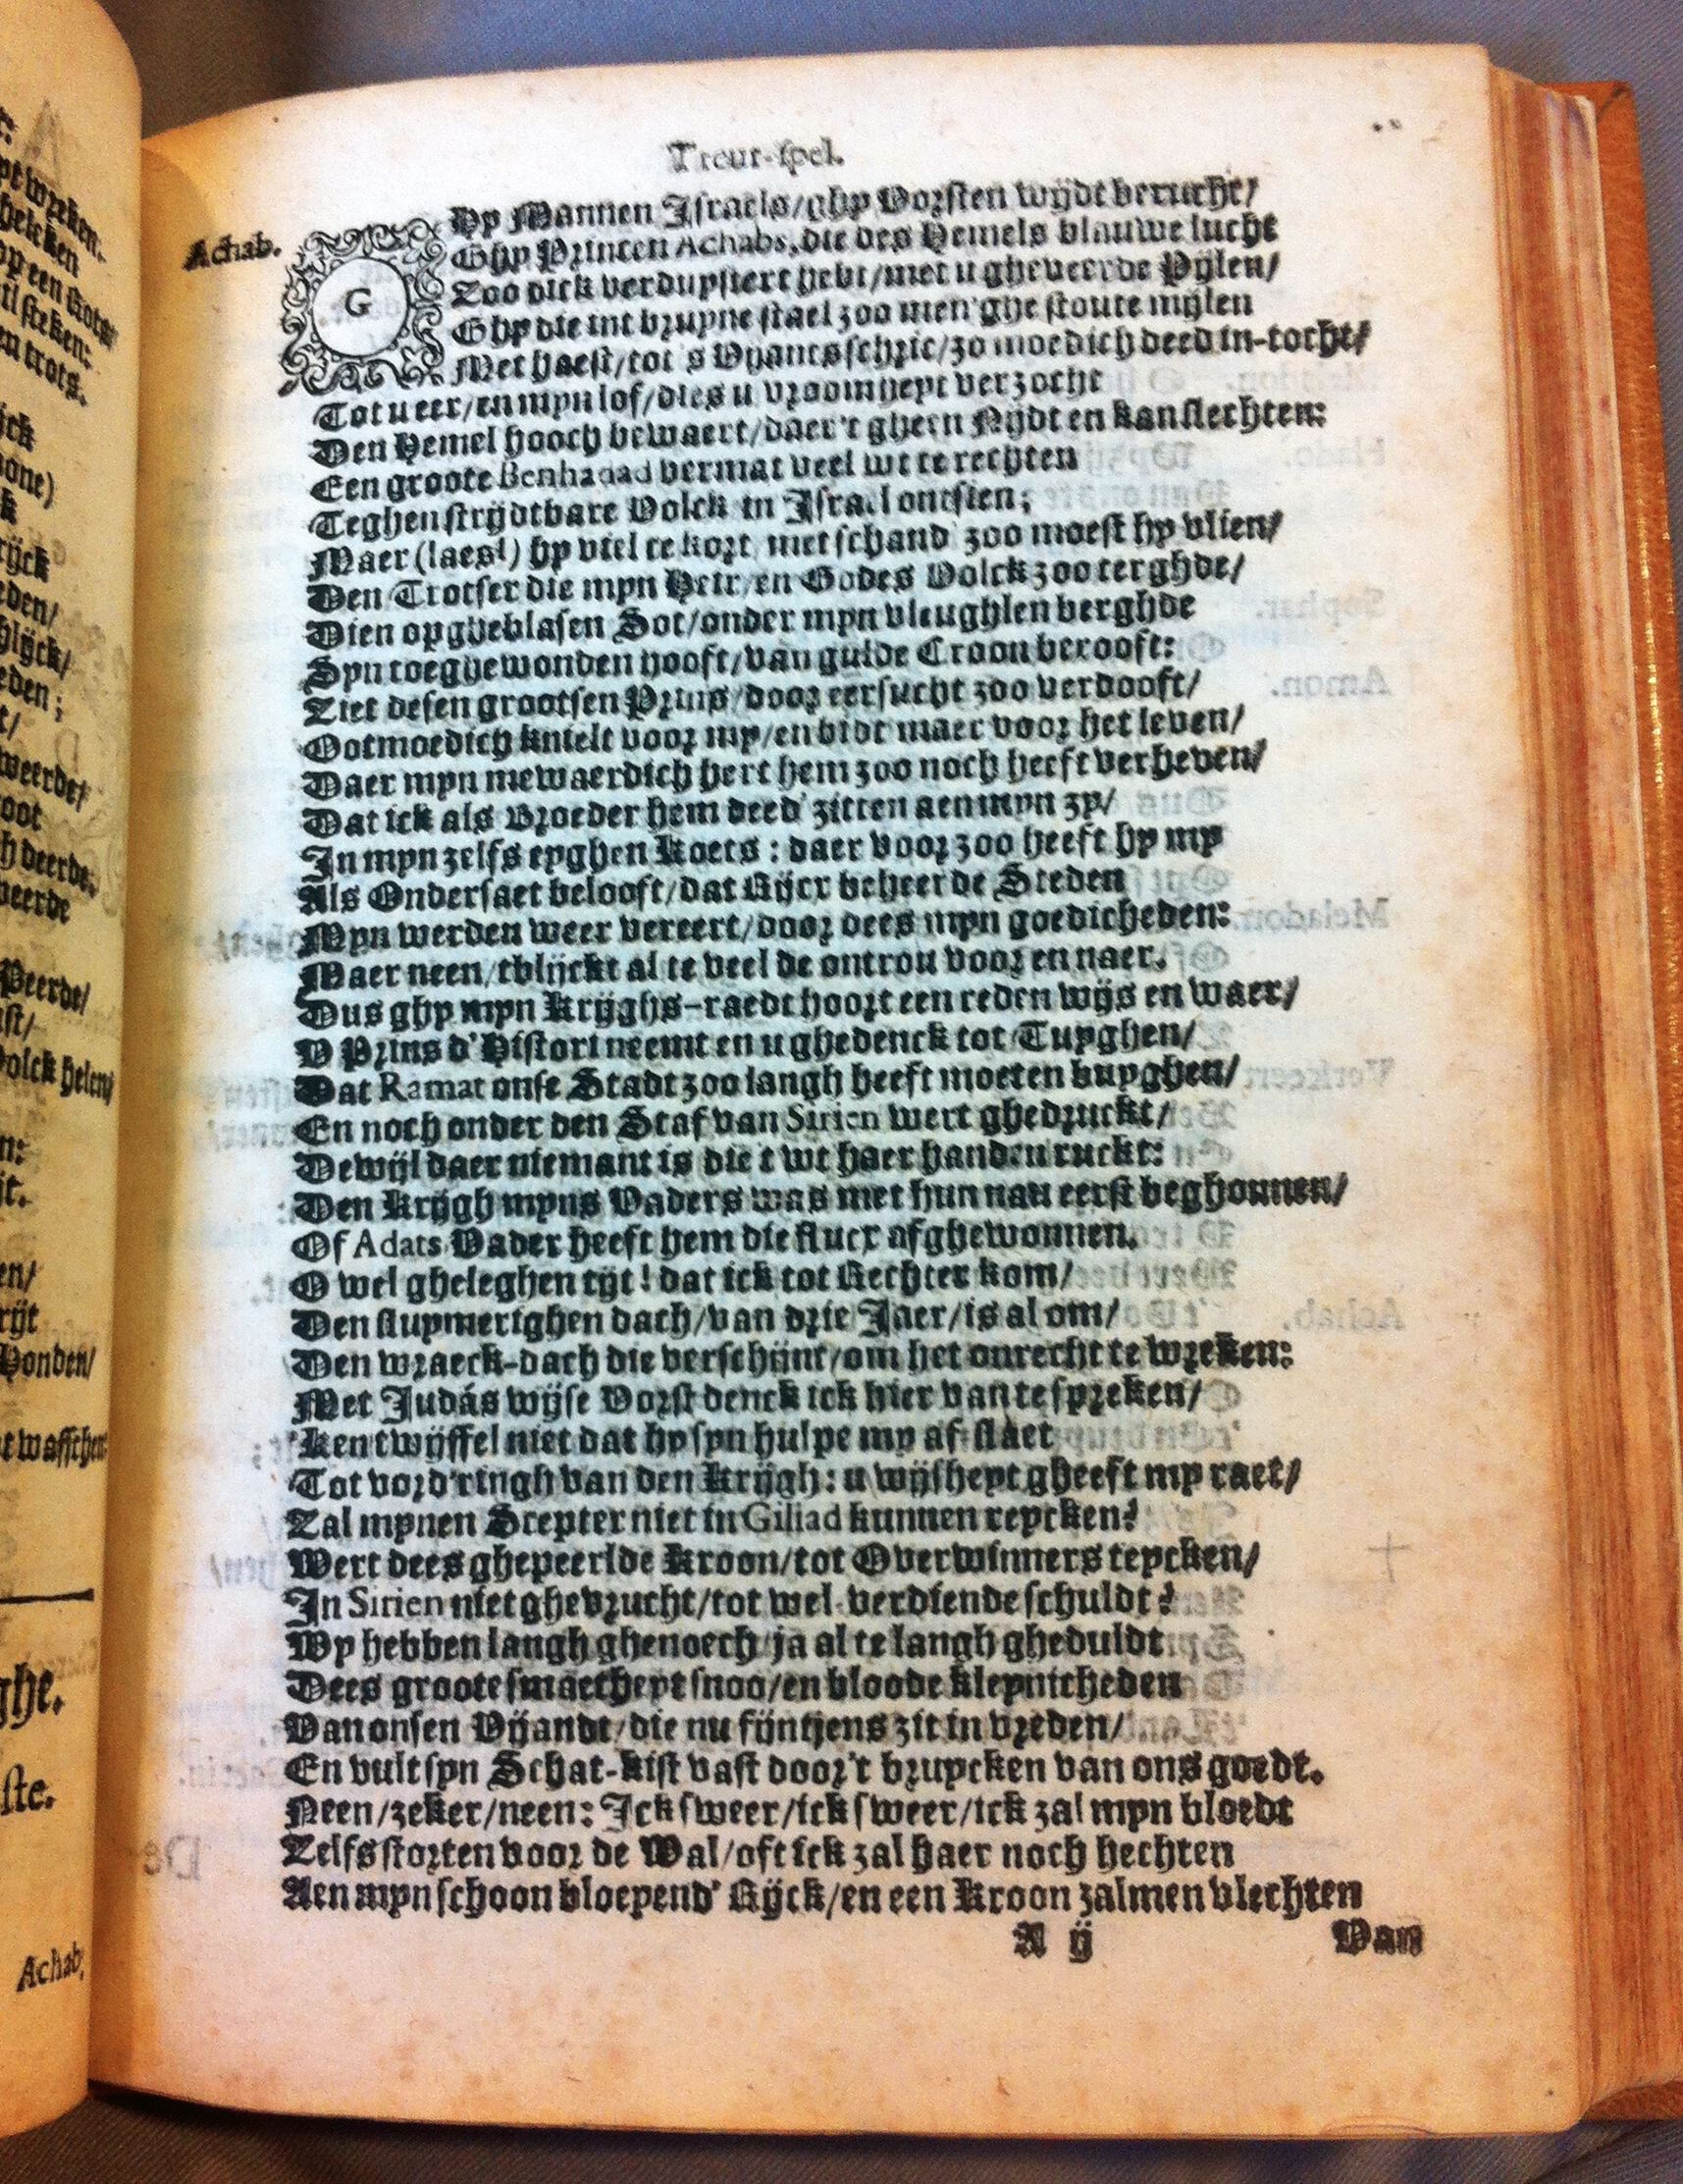 Treur-spel.
Achab.
GHy Mannen Israels/ghy Vorsten wijdt berucht/
Ghy Princen Achabs, die des Hemels blauwe lucht
Zoo dick verduystert hebt/met u gheveerde Pijlen/
Ghy die int bruyne stael zoo men'ghe stoute mijlen
Met haest/tot 's Vyants schric/zo moedich deed in-tocht/
Tot u eer/en myn lof/dies u vroomheyt verzocht
Den Hemel hooch bewaert/daer't gheen Nijdt en kan slechten:
Een groote Benhadad vermat veel wt te rechten
Teghen strijdtbare Volck in Israel ontsien;
Maer (laes!) hy viel te kort met schand' zoo moest hy vlien/
Den Trotser die myn Heir/en Godes Volck zoo terghde/
Dien opgheblasen Sot/onder myn vleughlen berghde
Syn toeghewonden hooft/van gulde Croon berooft:
Ziet desen grootsen Prins/door eersucht zoo verdooft/
Ootmoedich knielt voor my/en bidt maer voor het leven/
Daer myn mewaerdich hert hem zoo noch heeft verheven/
Dat ick als Broeder hem deed' zitten aen myn zy/
In myn zelfs eyghen Koets: daer voor zoo heeft hy my
Als Ondersaet belooft/dat Rijcx beheerde Steden
Myn werden weer vereert/door dees myn goedicheden:
Maer neen/tblijckt al te veel de ontrou voor en naer.
Dus ghy myn Krijghs-raedt hoort een reden wijs en waer/
V Prins d'Histori neemt en u ghedenck tot Tuyghen/
Dat Ramat onse Stadt zoo langh heeft moeten buyghen/
En noch onder den Staf van Sirien wert ghedruckt/
Dewijl daer niemant is die t wt haer handen ruckt:
Den Krijgh myns Vaders was met hun nau eerst beghonnen/
Of Adats Vader heeft hem die flucx afghewonnen.
O wel gheleghen tijt! dat ick tot Rechter kom/
Den sluymerighen dach/van drie Jaer/is al om/
Den wraeck-dach die verschijnt/om het onrecht te wreken:
Met Judás wijse Vorst denck ick hier van te spreken/
'Ken twijffel niet dat hy syn hulpe my af-slaet
Tot vord'ringh van den Krijgh: u wijsheyt gheeft my raet/
Zal mynen Scepter niet in Giliad kunnen reycken?
Wert dees ghepeerlde Kroon/tot Overwinners teycken/
In Sirien niet ghevrucht/tot wel-verdiende schuldt?
Wy hebben langh ghenoech/ja al te langh gheduldt
Dees groote smaetheyt snoo/en bloode kleynicheden
Van onsen Vijandt/die nu fijntjens zit in vreden/
En vult syn Schat-kist vast door't bruycken van ons goedt.
Neen/zeker/neen: Ick sweer/ick sweer/ick zal myn bloedt
Zelfs storten voor de Wal/oft ick zal haer noch hechten
Aen myn schoon bloeyend' Rijck/en een Kroon zal men vlechten
A ij
Van